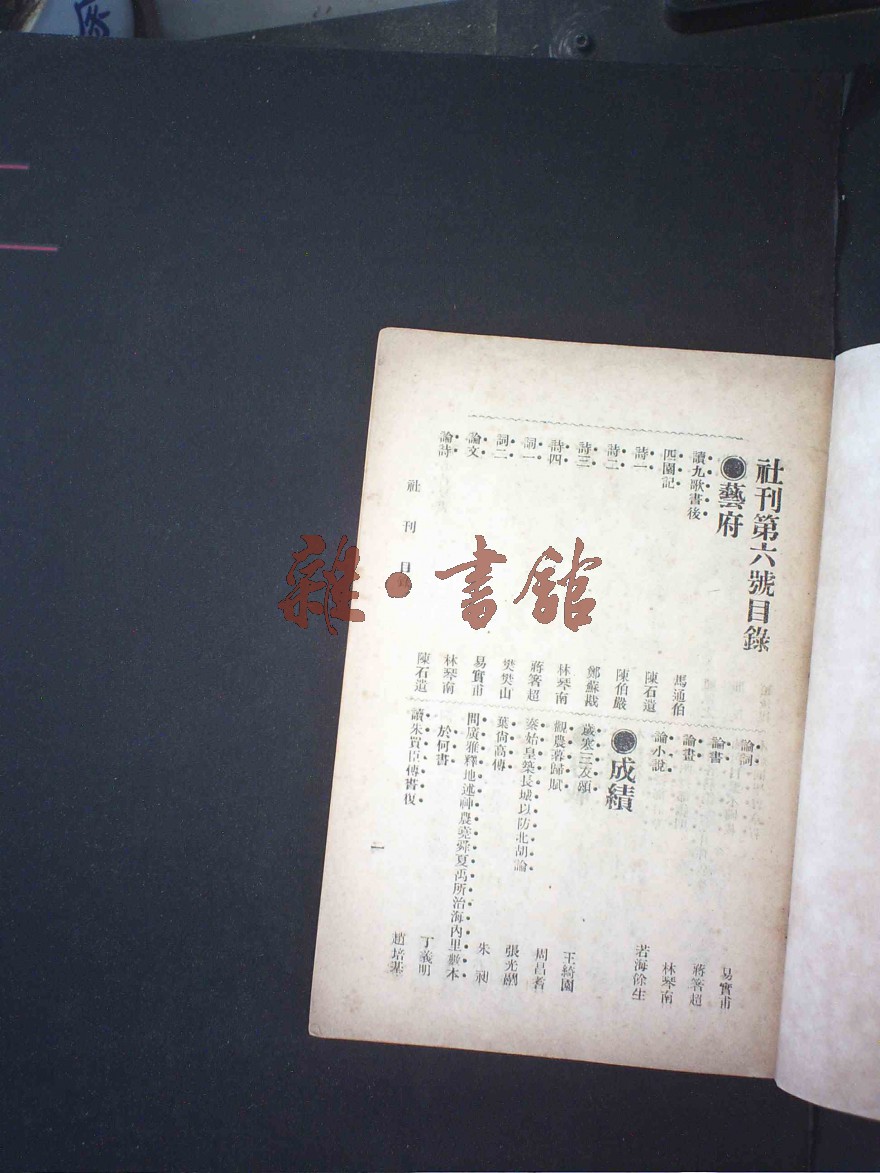 社刊第六號目錄
●藝府
讀九歌書後 馬通伯
匹園記 陳石遺
詩一 陳伯嚴
詩二 鄭蘇戡
詩三 林琴南
詩四 蔣箸超
詞一 樊樊山
詞二 易實甫
論文 林琴南
論詩 陳石遺
論詞 易實甫
論書 蔣箸超
論畫 林琴南
論小說 若海餘生
●成績
歲寒三友頌 王綺園
觀農蓐歸賦 周昌耆
秦始皇築長城以防北胡論 張光
葉尙高傳 朱
問廣雅釋地述神農堯舜夏禹所治海內里數本
於何書 丁義明
讀朱買臣傳書復 趙培基
社刊 目錄
一
雜·書館